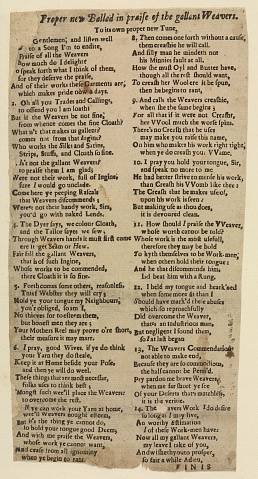 Proper new Ballad in praise of the gallant Weavers.
To its own proper new Tune,
Gentlemen, and listen well
to a Song I'm to endite,
Praise of all the Weavers
Now much do I delight
O speak forth what I think of them,
for they deserve the praise,
And of their works these Garments are,
which makes pride now a days.
2. Oh all you Trades and Callings,
to offend you I am loath;
But if the Weavers be not fine,
from whence comes the fine Cloath?
What's that makes us gallens?
comes not from that Ingine?
Who works the Silks and Satins,
Strips, Stuffs, and Cloath so fine.
Is't not the gallant Weavers?
to praise them I am glad;
Were not their work, full of Ingine,
sure I would go unclade.
Come here ye peeping Rascals
that Weavers discommends,
Were't not their handy work, Sirs,
you'd go with naked Lends.
4. The Dyer says, we colour Cloath,
and the Tailor says we sew,
Through Weavers hands it must first come
ere it get Selon or Flew.
Fair fell the gallant Weavers,
that is of such Ingine,
Whose works to be commended,
there Cloath it is so fine.
5. Forth comes some others, reasonless
Thief Webster they will cry;
Hold ye your tongue my Neighbours,
you'r obliged, so am I,
No thieves for to esteem them,
but honest men they are;
Your Mothers Reel may prove o're short,
their measure it may marr.
I pray, good Wives, if ye do think
your Yarn they do steale,
Keep it at Home beside your Pose.
and then ye will do weel.
These things that are most necessar,
folks uses to think best;
Mongst such we'll place the Weavers
to overcome the rest.
If ye can work your Yarn at home,
we'll Weavers nought esteem,
But it's the thing ye cannot do,
to hold your tongue good Deem.
And with me praise the Weavers,
whose work ye cannot want,
And cease from all ignominy
when ye begin to rant.
8. Then comes one forth without a cause,
them creashie he will call,
And silly man he mindeth not
his Minnies fault at all,
How she cust Oyl and Butter have,
through all the rest should want,
To creash her Wool ere it be spun,
then he begins to rant,
9. And calls the Weavers creashie,
when the same begins;
For all that if it were not Creash'd,
her VVool much the work spins.
There's no Creash that he uses
may make you raise this name,
On him who makes his work right tight,
when ye do creash you. VVame.
10. I pray you hold your tongue, Sir,
and speak no more to me
He had better strive to mend his work,
than Creash his VVomb like thee:
The Creash that he makes use of,
upon his work is seen;
But making use as thou does,
it is devoured clean.
11. How should I praise the VVeaver,
whose worth cannot be told?
Whose work is the most usefull,
therefore they may be bold
To kyth themselves to be Work-men,
when others hold their tongue:
And he that discommends him,
Led beat him with a Rung.
12. I held my tongue and heark'ned
when some more is than I
Should have mark'd these abuses
which so reproachfully
Did overcome the Weaver,
thats an industrious man,
But negligent I found them,
so I at last began
13. The Weavers Commendation
not able to make end,
Because they are so commodious,
the half cannot be Penn'd.
Pry pardon me brave Weavers,
when one far short ye see
Of your Deserts that's matchless,
it is the verities.
14. The Weavers Work I do desire
so long as I may live,
An worthy Estimation
of these Work-men have:
Now all my gallant Weavers,
my leave I take of you,
And wisheth you to prosper,
so fair a while Adieu,
FINIS